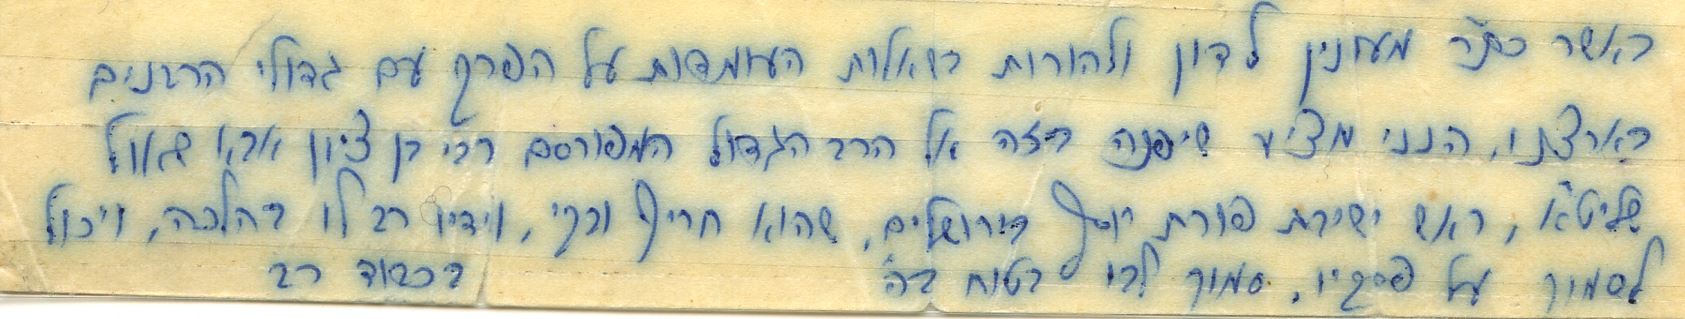 באשר כת"ר מעונין לדון ולהורות בשאלות העומדות על הפרק עם גדולי הרבנים
בארצנו, הנני מציע שיפנה בזה אל הרב הגדול המפורסם רבי בן ציון אבא שאול
שליט"א, ראש ישיבת פורת יוסף בירושלים, שהוא חריף ובקי, וידיו רב לו בהלכה, ויכול
לסמוך על פסקיו, סמוך לבו בטוח בה' בכבוד רב